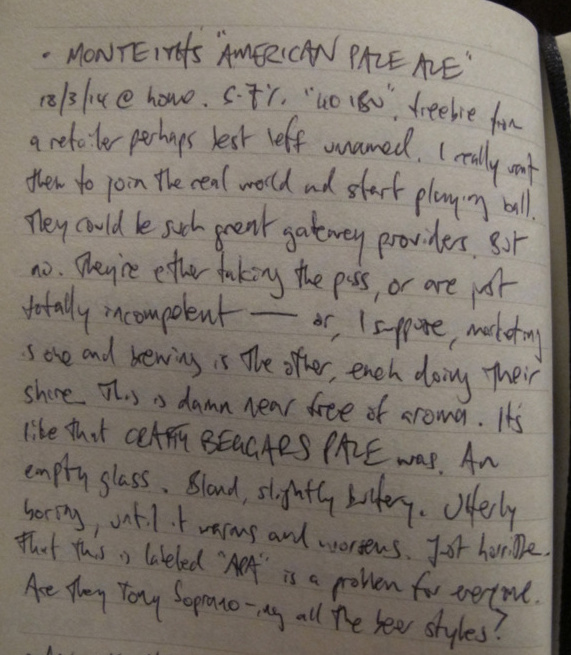 · MONTEITH'S "AMERICAN PALE ALE"
18/3/14 @ home. 5.7%. "40 IBU". freebie from
a retailer perhaps best left unnamed. I really want
them to join the real world and start playing ball.
They could be such great gateway providers. But
no. They're either taking the piss, or are just
totally incompetent — or, I suppose, marketing
is one and brewing is the other, each doing their
share. This is damn near free of aroma. It's
like that CRAFTY BEGGARS PALE was. An
empty glass. Bland, slightly buttery. Utterly
boring, until it warms and worsens. Just horrible.
That this is labeled "APA" is a problem for everyone.
Are they Tony Soprano-ing all the beer styles?